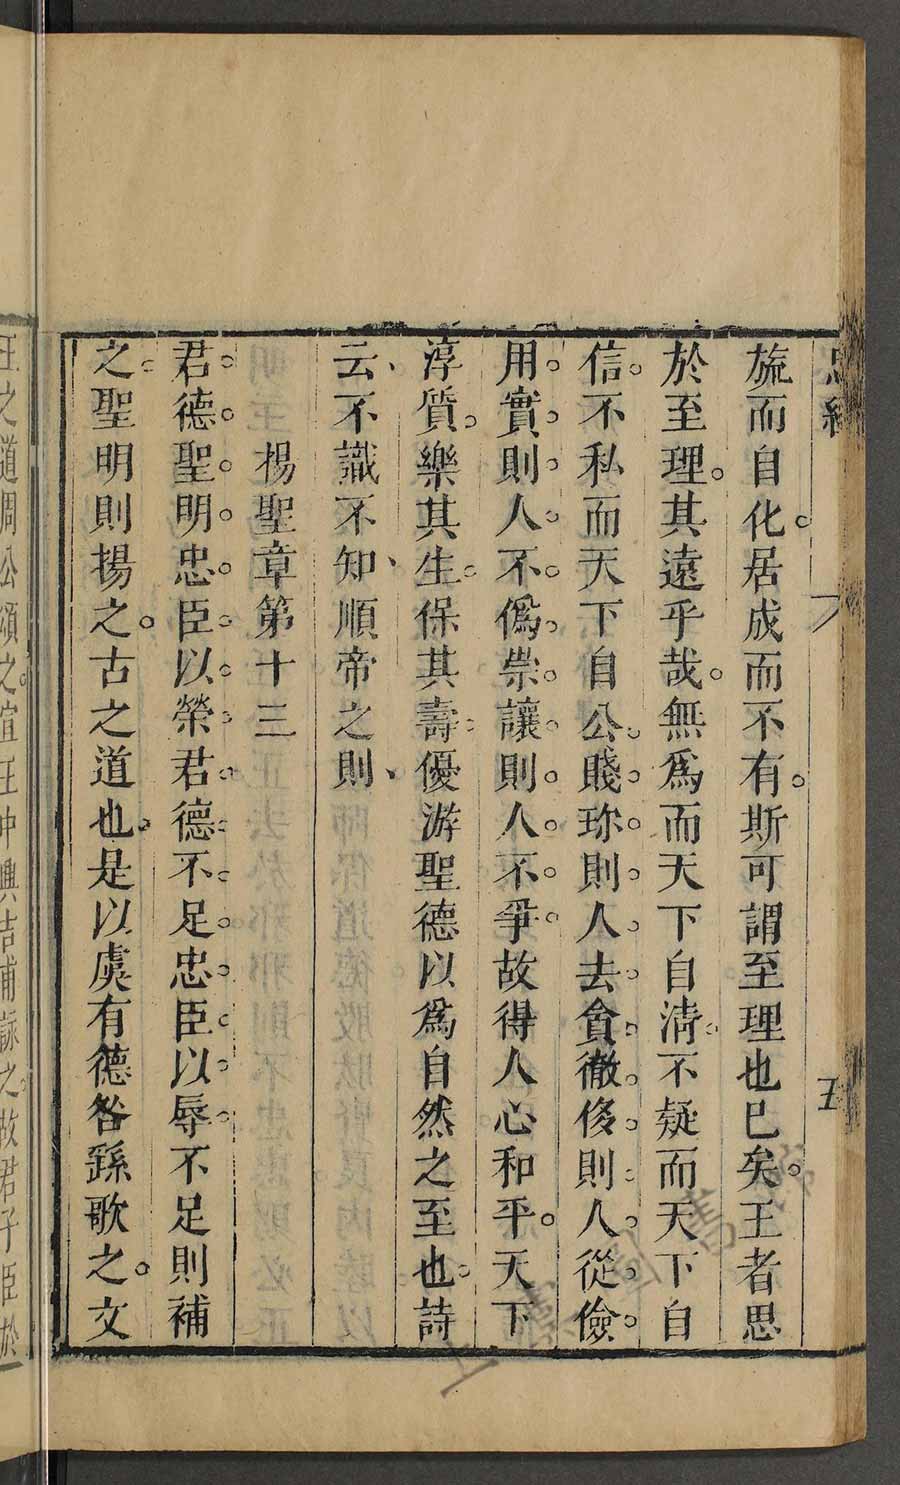 旒而自化居成而不有斯可謂至理也已矣王者思
於至理其遠乎哉無爲而天下自淸不疑而天下自
信不私而天下自公賤珎則人去貪徹侈則人從儉
用實則人不僞崇讓則人不爭故得人心和平天下
淳質樂其生保其壽優游聖德以爲自然之至也詩
云不識不知順帝之則
楊聖章第十三
君德聖明忠臣以榮君德不足忠臣以辱不足則補
之聖明則揚之古之道也是以虞有德咎繇歌之文
王之道周公頌之宣王中興吉甫詠之故君子臣於